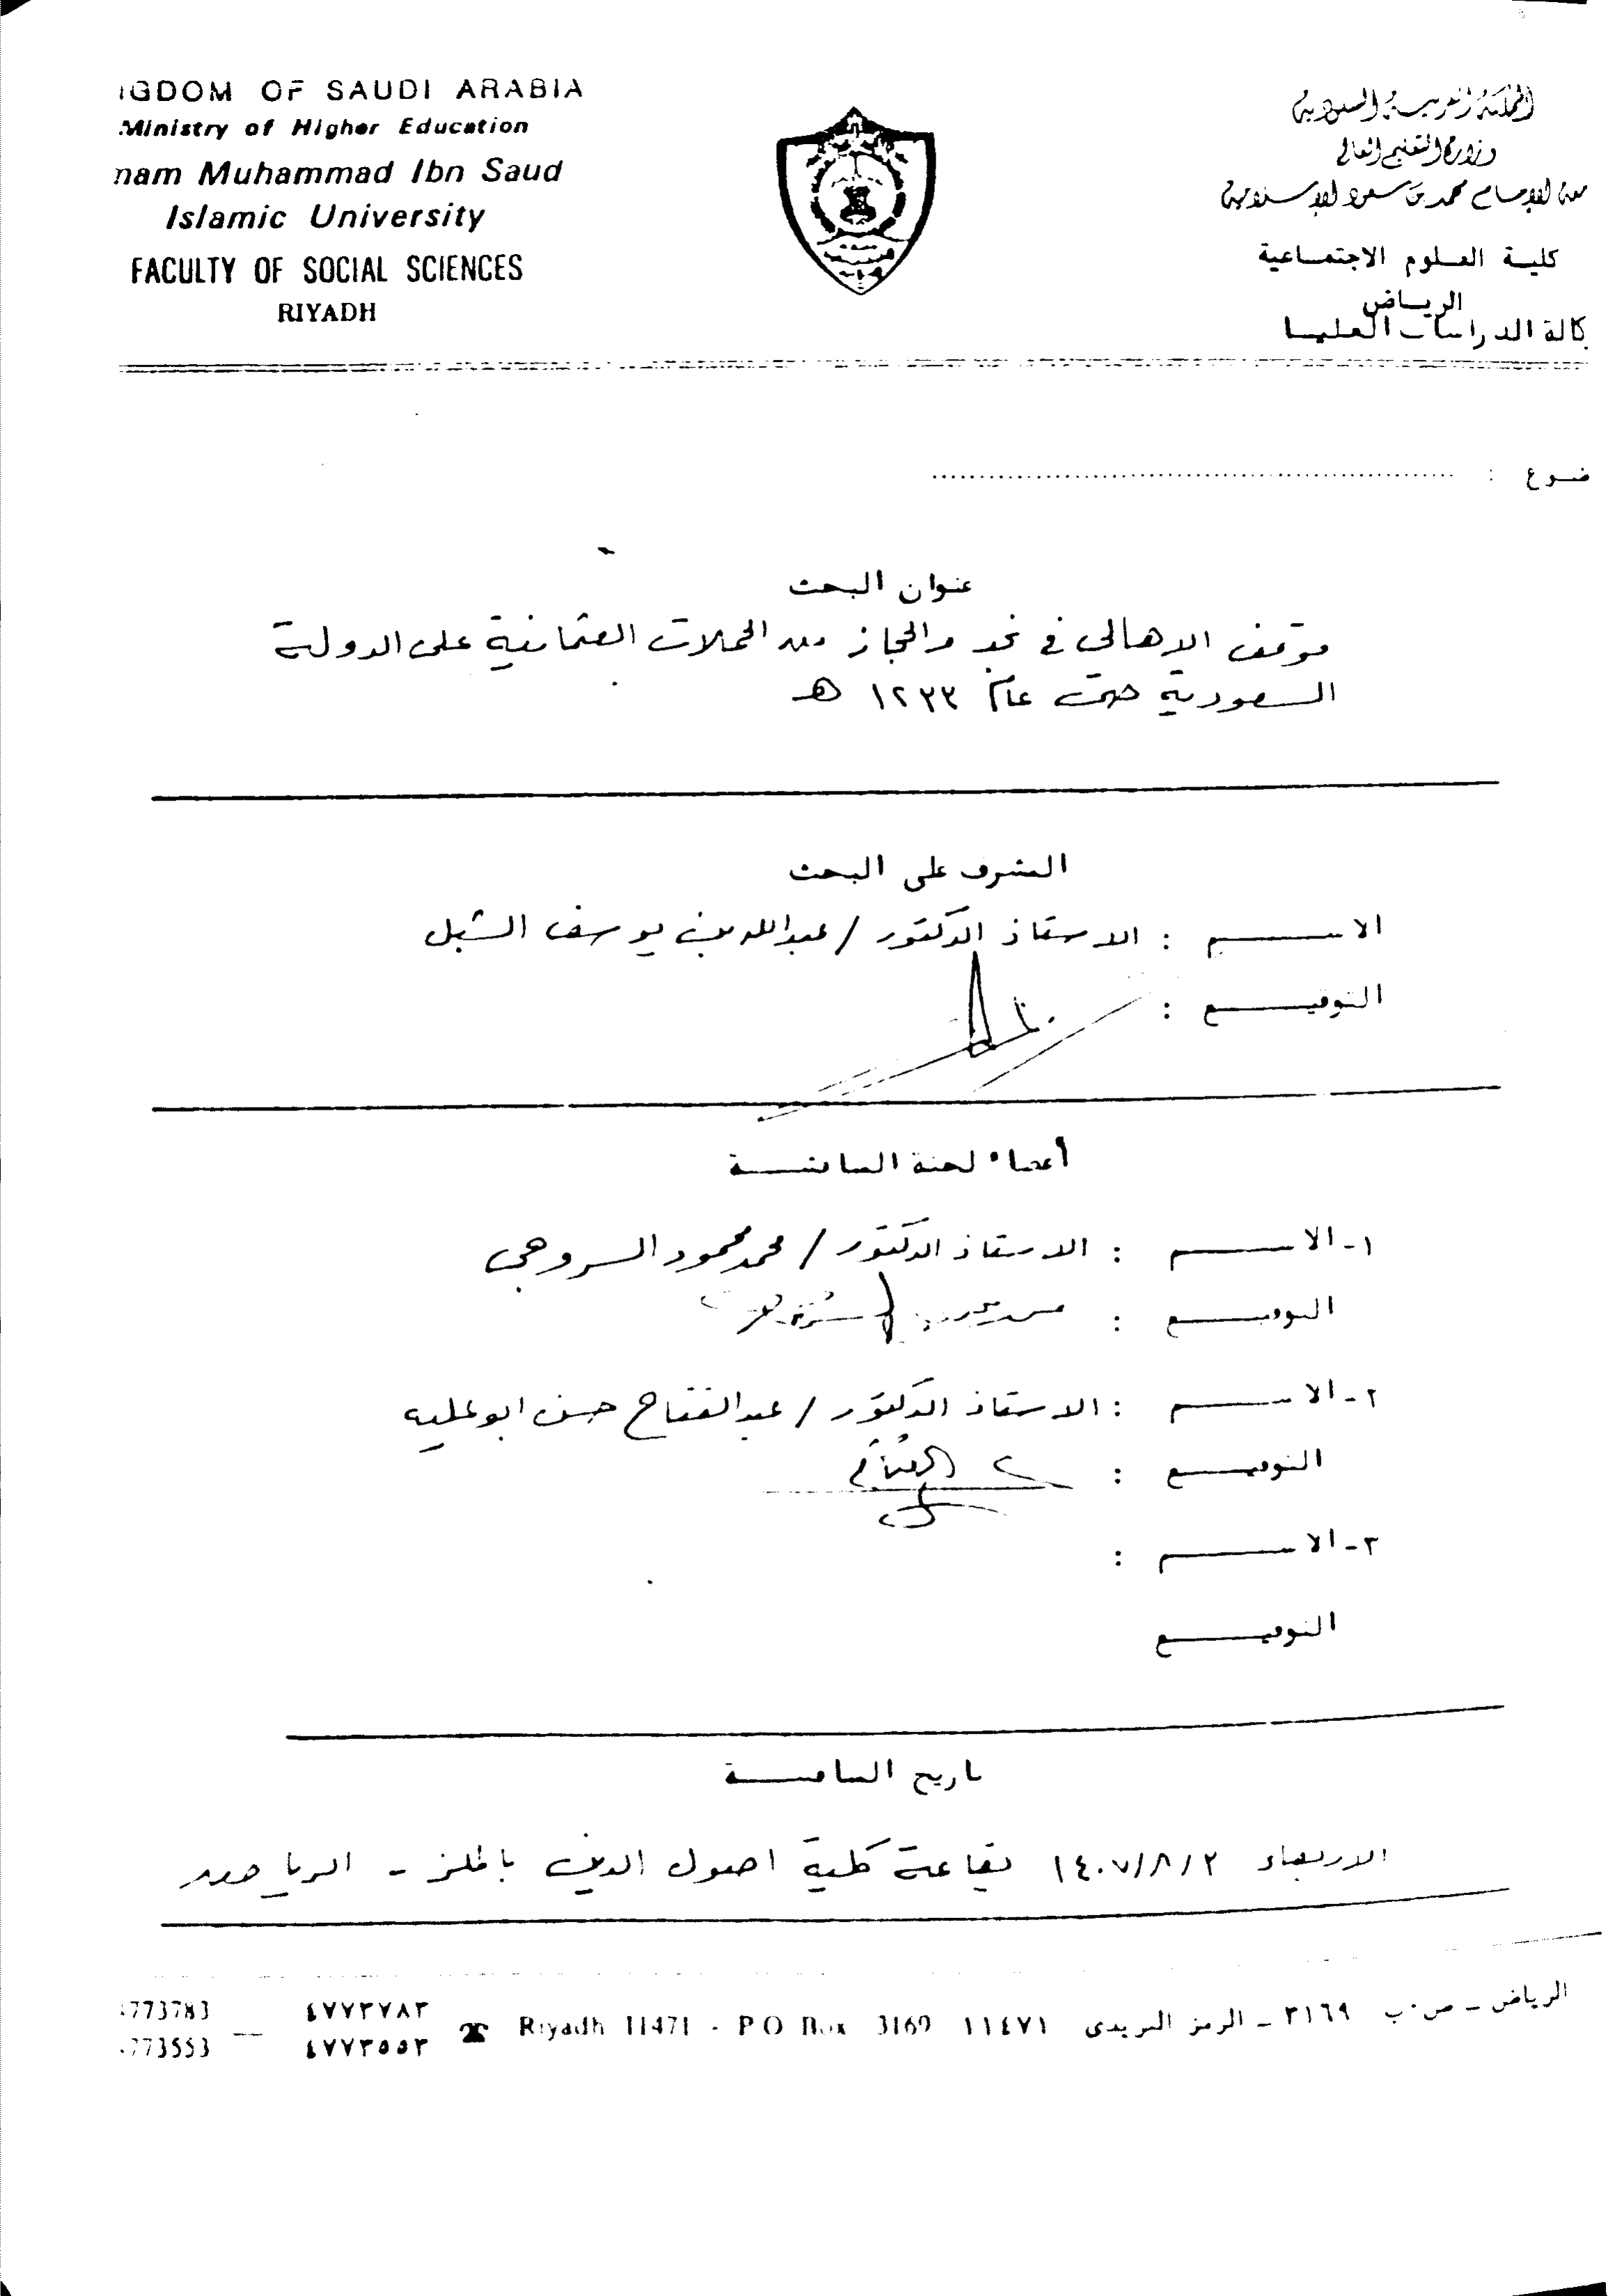 IGDOM OF SAUDI ARABIA
Ministry of Higher Education
nam Muhammad Ibn Saud
Islamic University
FACULTY OF SOCIAL SCIENCES
RIYADH
المملكة العربية السعودية
وزارة التعليم العالي
معة الإمام محمد بن سعود الإسلامية
كلية العلوم الاجتماعية
الرياض
كالة الدراسات العليا
ضوع :
عنوان البحث
موقف الاهالي في نجد والحجاز من الحملات العثمانية على الدولة
السعودية حتى عام ١٢٣٣ هـ
المشرف على البحث
الاسم : الاستاذ الدكتور / عبدالله بن يوسف الشبل
التوقيع :
أعضاء لجنة المناقشة
١- الاسم : الاستاذ الدكتور / محمد محمود السروجي
التوقيع :
٢- الاسم : الاستاذ الدكتور / عبدالفتاح حسن ابوعليه
التوقيع :
٣- الاسم :
التوقيع
تاريخ المناقشة
الاربعاء ١٤٠٧/٨/٢ بقاعة كلية اصول الدين بالملز - الرياض
الرياض - ص٠ب ٣١٦٩ - الرمز البريدى ١١٤٧١ Riyadh 11471 - P O Box 3169 ☎
٤٧٧٣٧٨٣ — 773783
٤٧٧٣٥٥٣ 773553